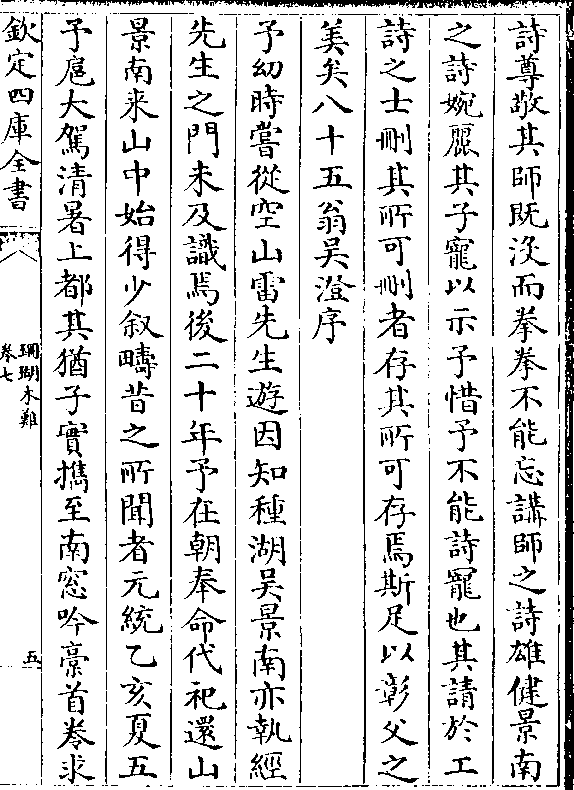 詩尊敬其師既沒而拳拳不能忘講師之詩雄健景南
之詩婉麗其子寵以示予惜予不能詩寵也其請於工
詩之士刪其所可刪者存其所可存焉斯足以彰父之
美矣八十五翁吳澄序
予幼時嘗從空山雷先生遊因知種湖吳景南亦執經
先生之門未及識焉後二十年予在朝奉命代祀還山
景南来山中始得少叙疇昔之所聞者元統乙亥夏五
予扈大駕清暑上都其猶子實携至南窓吟藁首卷求
欽定四庫全書
珊瑚木難
卷七
五